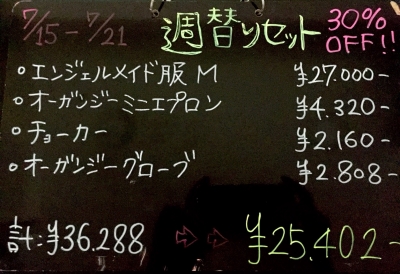 7/15 - 7/21 週替りセット 30% OFF!!
○エンジェルメイド服 M ¥27.000-
○オーガンジーミニエプロン ¥4.320-
○チョーカー ¥2.160-
○オーガンジーグローブ ¥2.808-
計:¥36.288 ⇨ ⇨ ¥25.402-